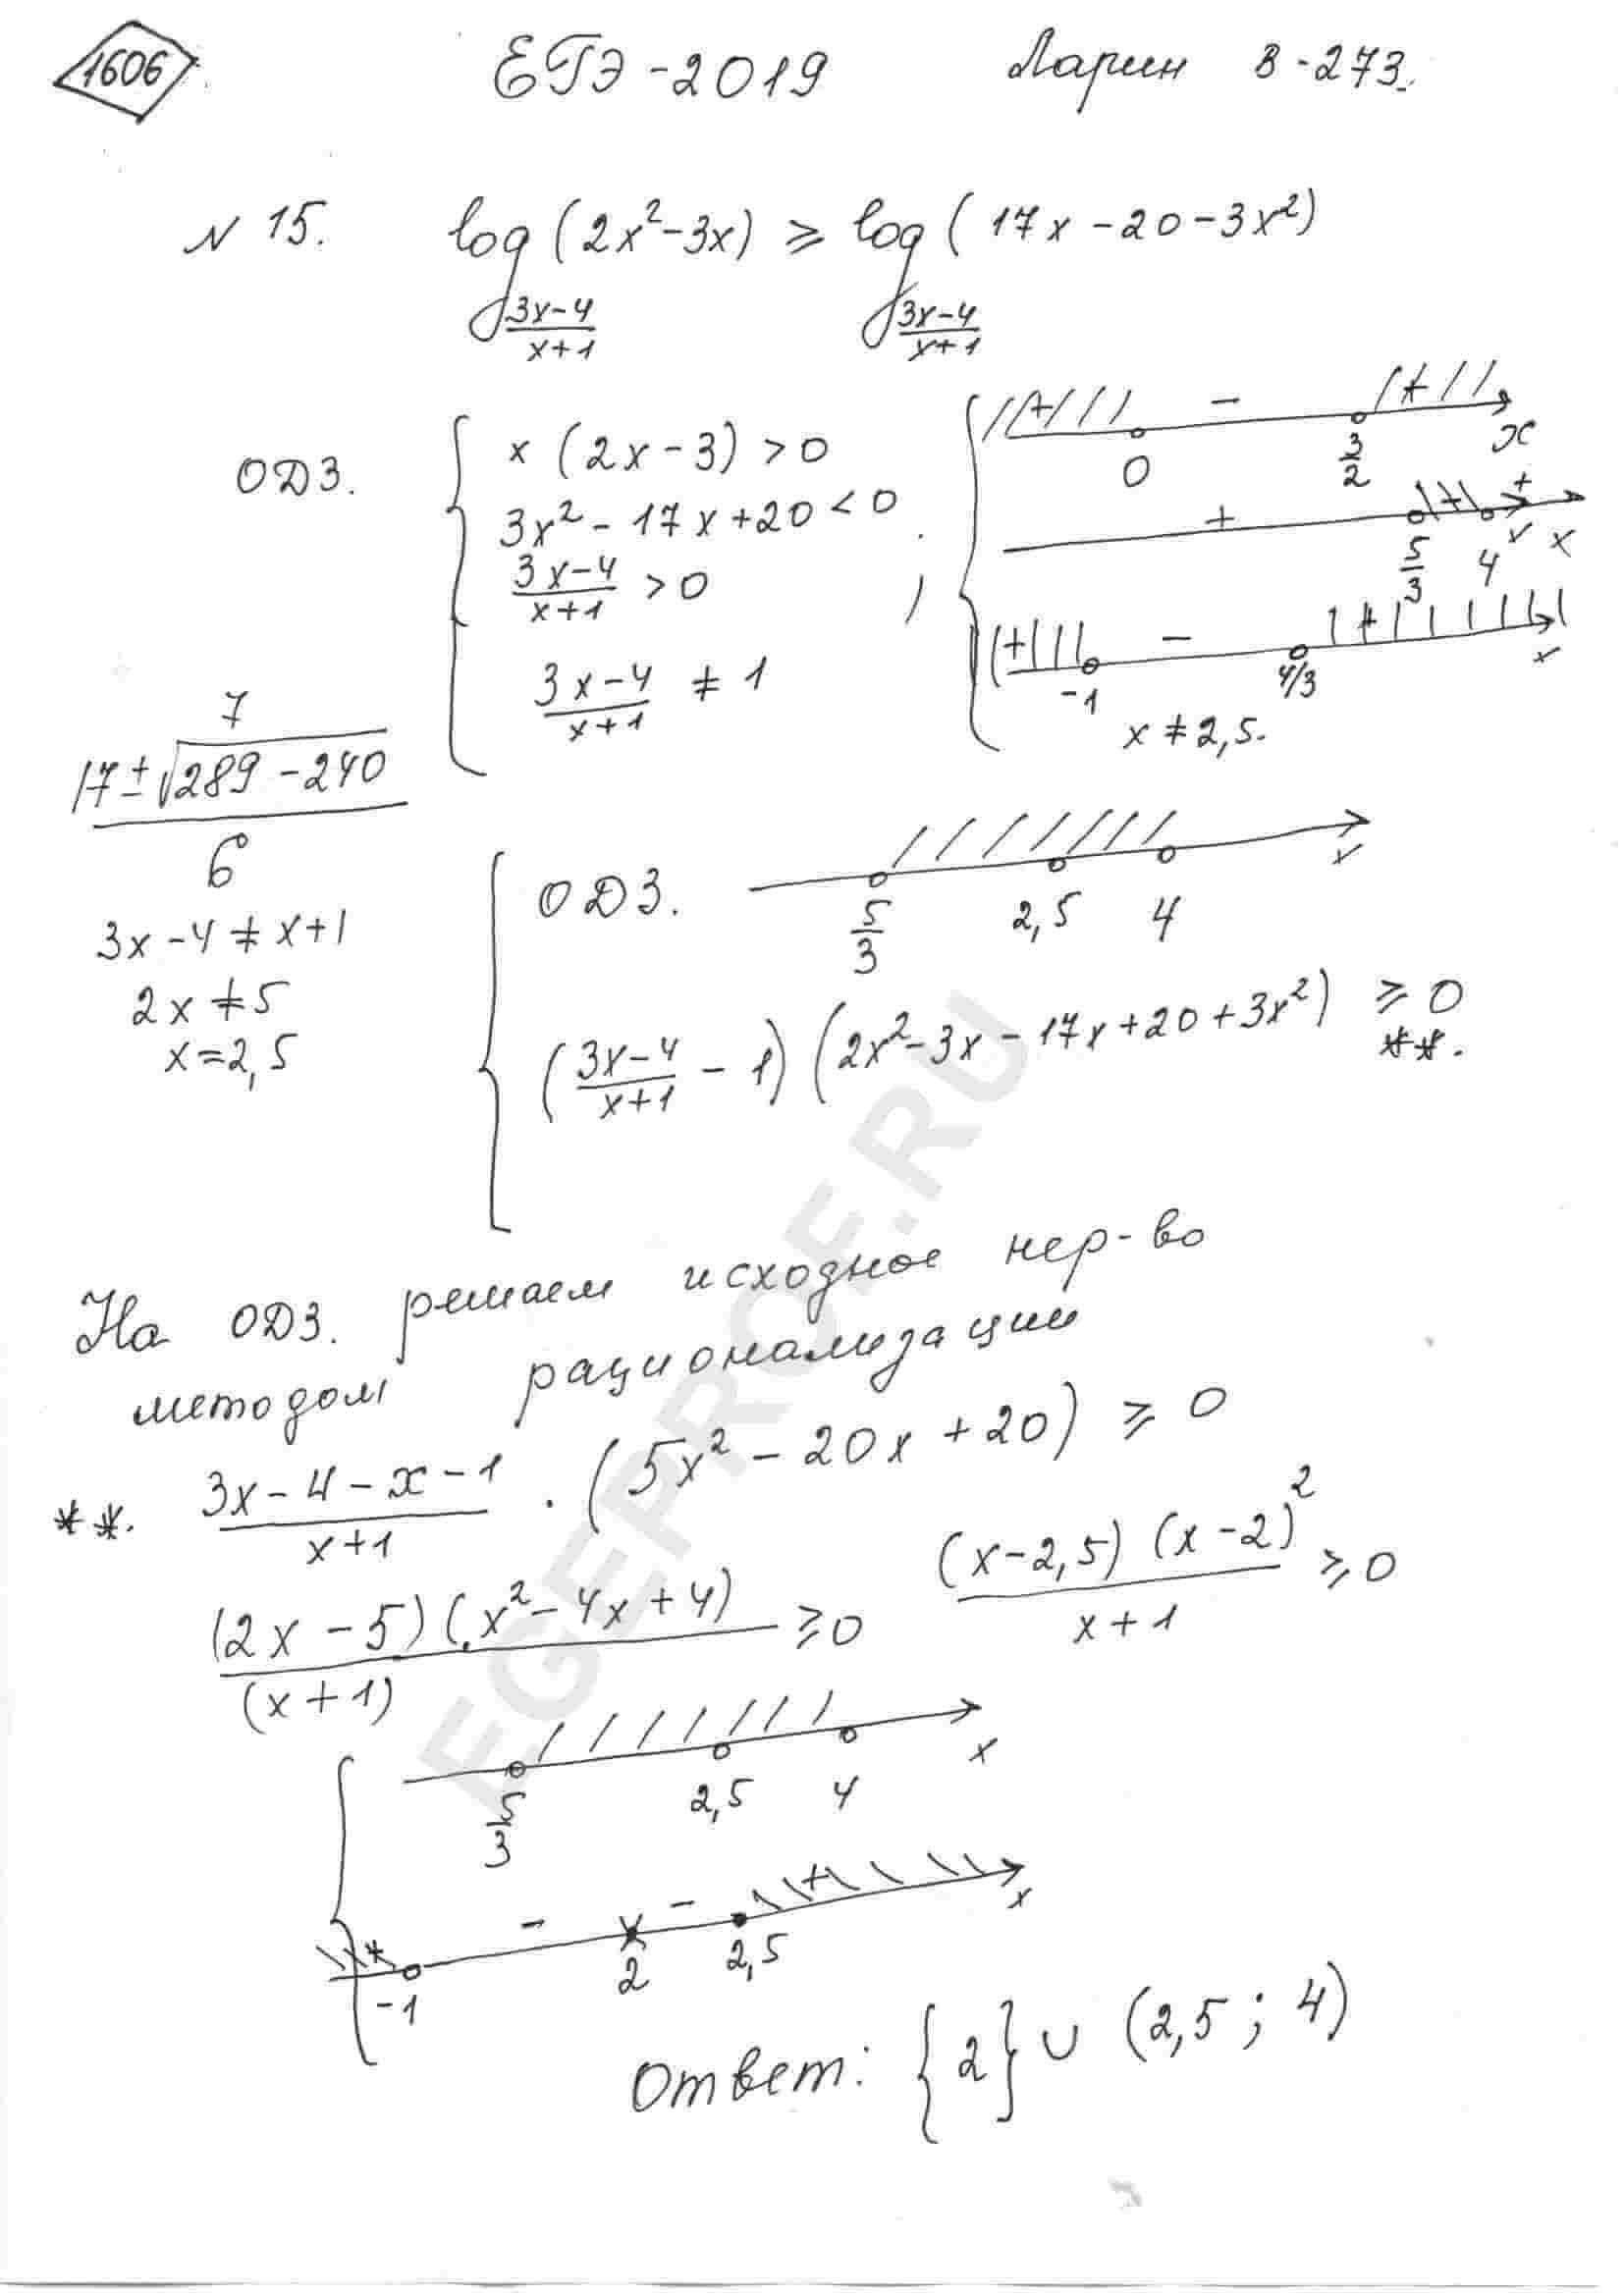 1606
ЕГЭ - 2019
Ларин В-273.
N 15. log_{(3x-4)/(x+1)} (2x² - 3x) ≥ log_{(3x-4)/(x+1)} (17x - 20 - 3x²)
ОДЗ.
x (2x - 3) > 0
3x² - 17x + 20 < 0
(3x-4)/(x+1) > 0
(3x-4)/(x+1) ≠ 1
;
+ - +
0 3/2 x
+ - + +
5/3 4 x x
+ - +
-1 4/3 x
x ≠ 2,5.
7
(17 ± √(289 - 240))/6
3x - 4 ≠ x + 1
2x ≠ 5
x = 2,5
ОДЗ.
5/3 2,5 4 x
((3x-4)/(x+1) - 1) (2x² - 3x - 17x + 20 + 3x²) ≥ 0
**.
На ОДЗ. решаем исходное нер-во
методом рационализации
**. (3x - 4 - x - 1)/(x+1) · (5x² - 20x + 20) ≥ 0
((2x - 5)(x² - 4x + 4))/(x+1) ≥ 0
((x - 2,5)(x - 2)²)/(x+1) ≥ 0
5/3 2,5 4 x
+ - - +
-1 2 2,5 x
Ответ: {2} ∪ (2,5; 4)
EGEPROF.RU